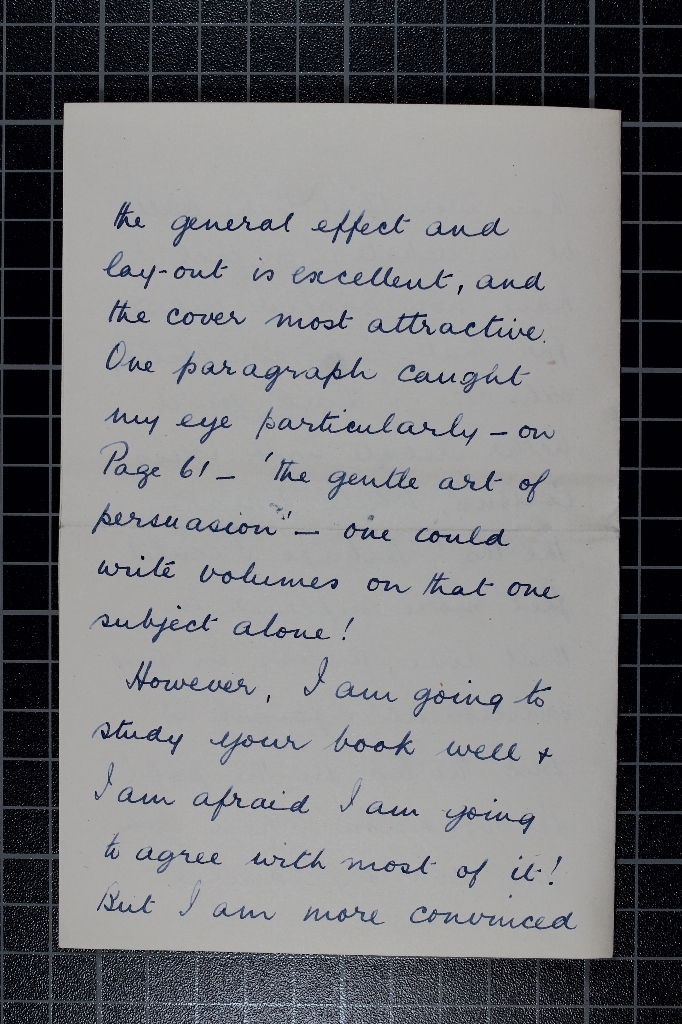 the general effect and
lay-out is excellent, and
the cover most attractive.
One paragraph caught
my eye particularly – on
Page 61 – 'the gentle art of
persuasion' – one could
write volumes on that one
subject alone!
However, I am going to
study your book well +
I am afraid I am going
to agree with most of it!
But I am more convinced